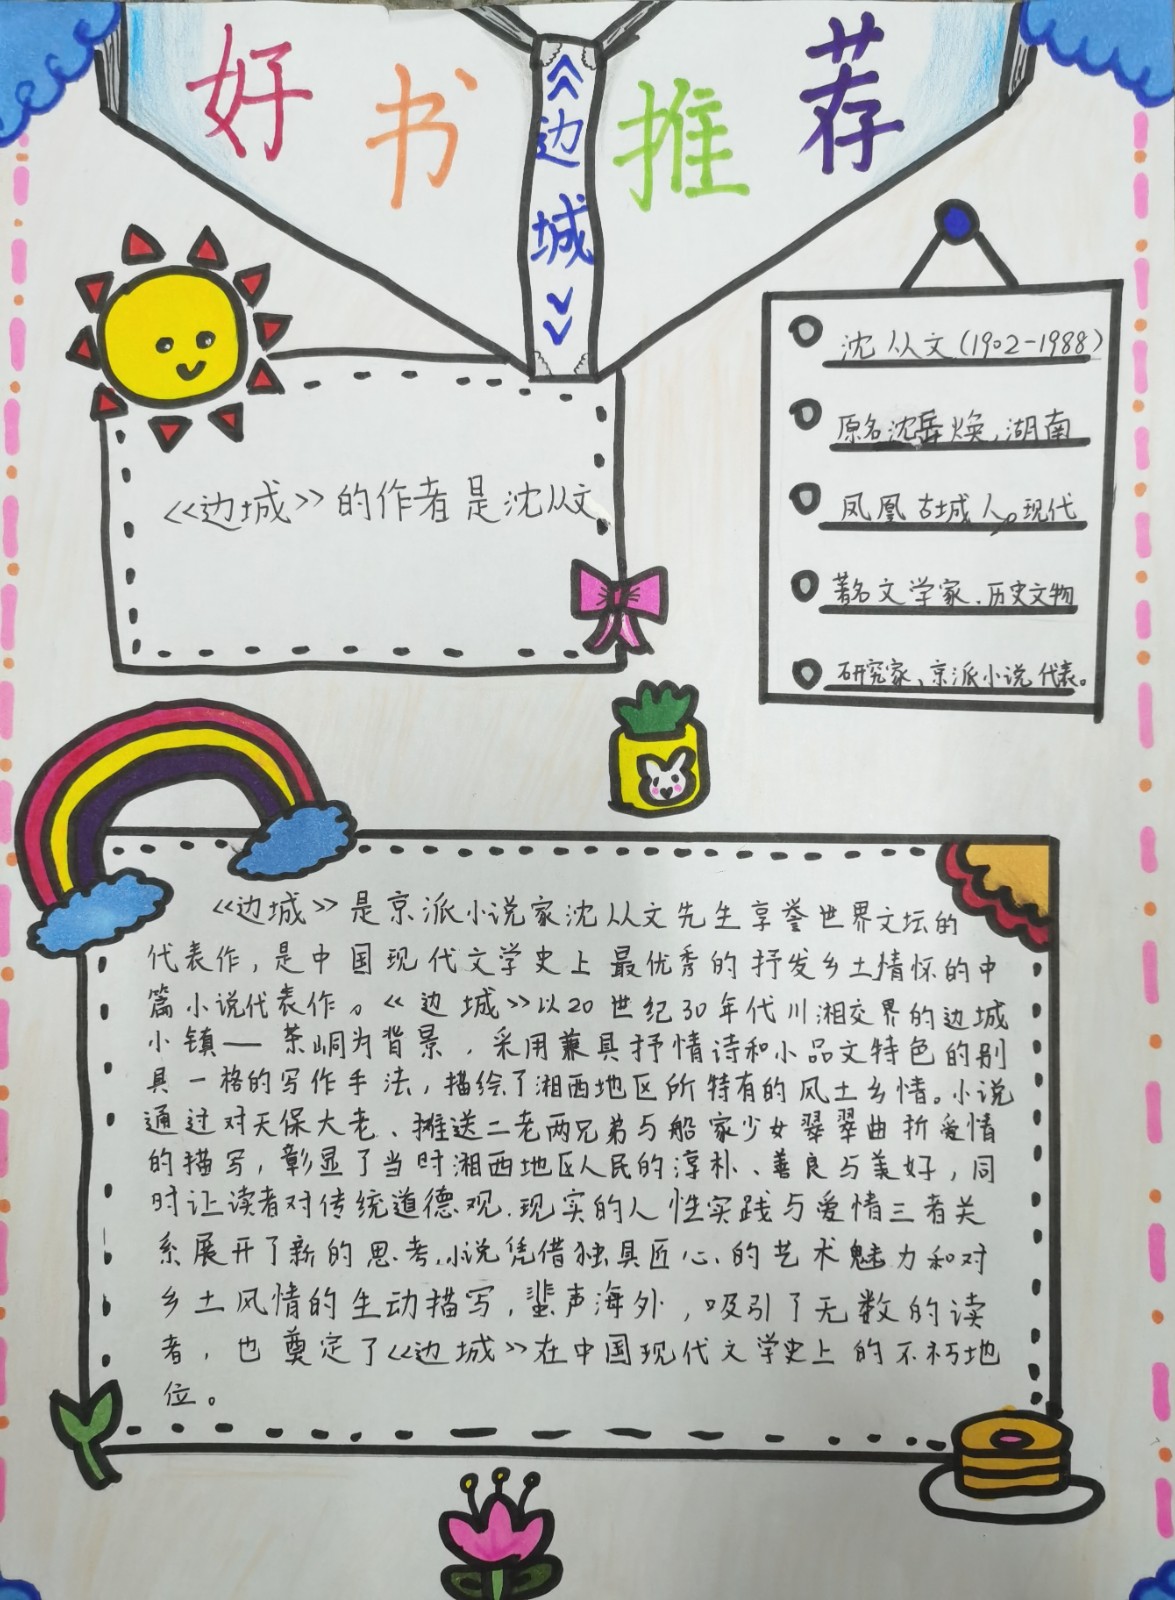 好书推荐
《边城》
沈从文(1902-1988)
原名沈岳焕,湖南
凤凰古城人。现代
著名文学家、历史文物
研究家、京派小说代表。
《边城》的作者是沈从文
《边城》是京派小说家沈从文先生享誉世界文坛的
代表作,是中国现代文学史上最优秀的抒发乡土情怀的中
篇小说代表作。《边城》以20世纪30年代川湘交界的边城
小镇—茶峒为背景,采用兼具抒情诗和小品文特色的别
具一格的写作手法,描绘了湘西地区所特有的风土乡情。小说
通过对天保大老、摊送二老两兄弟与船家少女翠翠曲折爱情
的描写,彰显了当时湘西地区人民的淳朴、善良与美好,同
时让读者对传统道德观、现实的人性实践与爱情三者关
系展开了新的思考,小说凭借独具匠心的艺术魅力和对
乡土风情的生动描写,蜚声海外,吸引了无数的读
者,也奠定了《边城》在中国现代文学史上的不朽地
位。